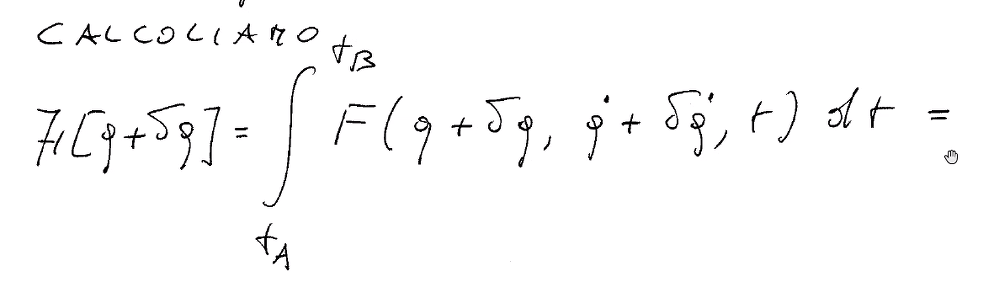 CALCOLIAMO
F[q+δq] = ∫_{t_A}^{t_B} F(q+δq, q̇+δq̇, t) dt =